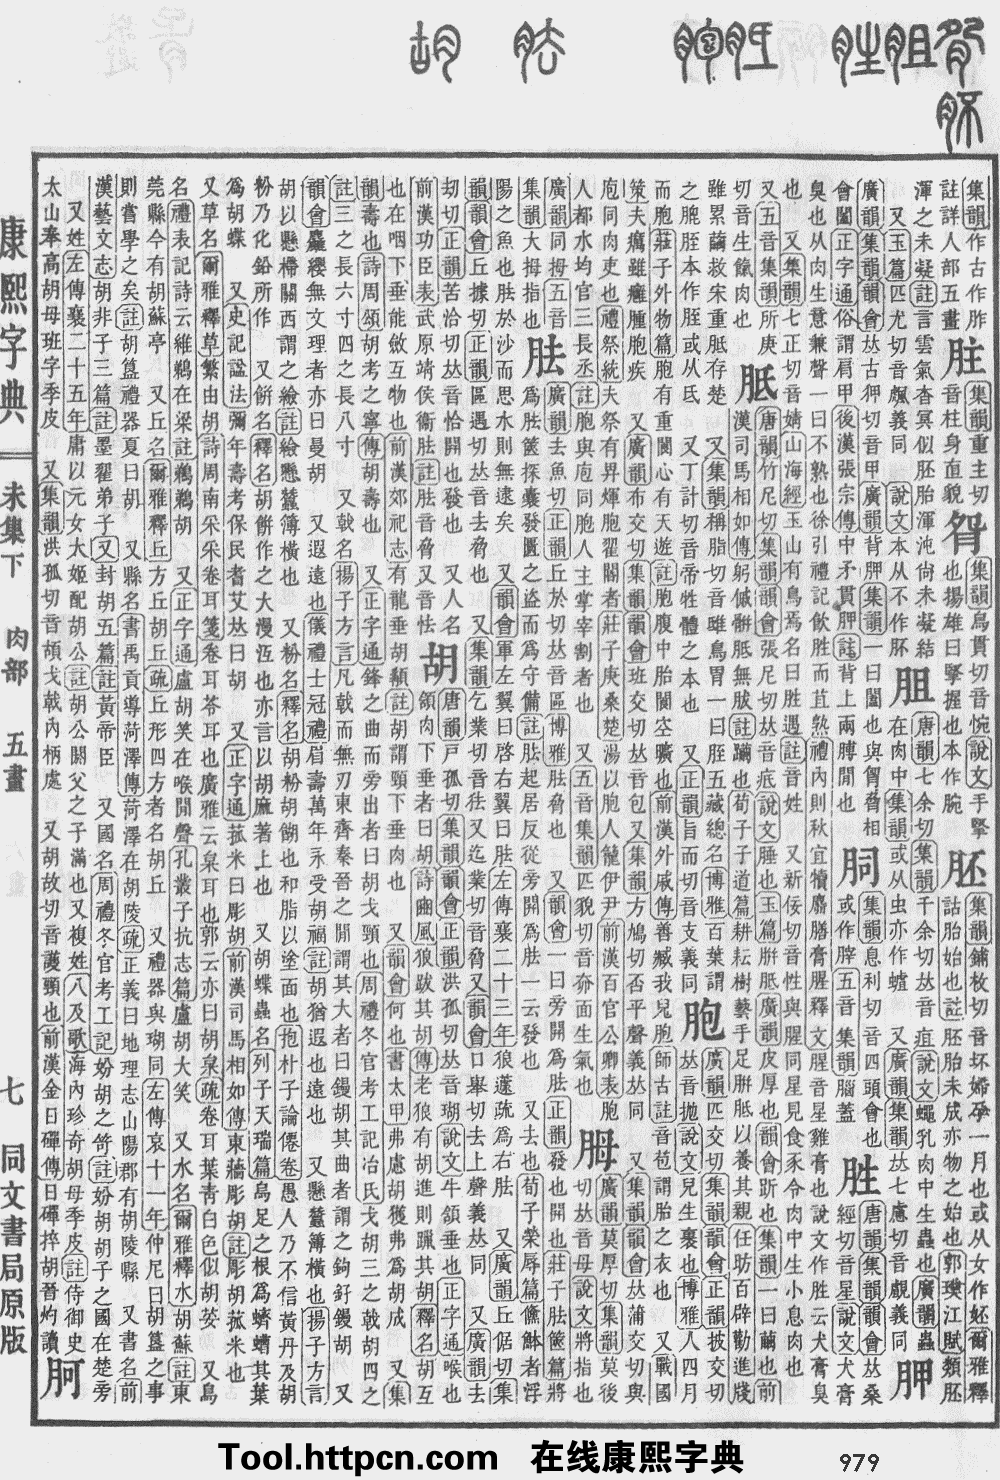 集韻作古作胙註詳人部五畫
集韻重主切音柱身直貌
集韻烏貫切音惋說文手掔也揚雄曰掔握也本作腕
胚 集韻鋪枚切音坏婦孕一月也或从女作妚爾雅釋詁胎始也註胚胎未成亦物之始也郭璞江賦類胚渾之未凝註言雲氣杳冥似胚胎渾沌尚未凝結 又玉篇匹尤切音䬌義同 說文本从不作肧
胆 唐韻七余切集韻千余切𠀤音疽說文蠅乳肉中生蟲也廣韻蟲在肉中集韻或从虫亦作蛆 又廣韻集韻𠀤七慮切音覰義同
胛 廣韻集韻韻會𠀤古狎切音甲廣韻背胛集韻一曰闔也與胷脅相會闔正字通俗謂肩甲後漢張宗傳中矛貫胛註背上兩膊閒也
集韻息利切音四頭會也五音集韻腦蓋
胜 唐韻集韻韻會𠀤桑經切音星說文犬膏臭也从肉生意兼聲一曰不熟也徐引禮記飮胜而苴熟禮內則秋宜犢麛膳膏腥釋文腥音星雞膏也說文作胜云犬膏臭也 又集韻七正切音婧山海經玉山有鳥焉名曰胜遇註音姓 又新佞切音性與腥同星見食豕令肉中生小息肉也 又五音集韻所庚切音生肉也
胝 唐韻竹尼切集韻韻會張尼切𠀤音疷說文腄也玉篇胼胝廣韻皮厚也韻會趼也集韻一曰繭也前漢司馬相如傳躬傶骿胝無胈註躪也荀子子道篇耕耘樹藝手足胼胝以養其親任昉百辟勸進牋雖累繭救宋重胝存楚 又集韻稱脂切音雖鳥胃一曰胵五藏總名博雅百葉謂之膍胵本作胵或从氐 又丁計切音帝牲體之本也 又正韻旨而切音支義同
胞 廣韻匹交切集韻韻會正韻披交切𠀤音拋說文兒生裹也博雅人四月而胞莊子外物篇胞有重閬心有天遊註胞腹中胎閬空曠也前漢外戚傳善臧我兒胞師古註音苞謂胎之衣也 又戰國策夫癘雖癰腫胞疾 又廣韻布交切集韻韻會班交切𠀤音包 又集韻方鳩切否平聲義𠀤同 又集韻韻會𠀤蒲交切與庖同肉吏也禮祭統夫祭有畀煇胞翟閽者莊子庚桑楚湯以胞人籠伊尹 前漢百官公卿表胞人都水均官三長丞註胞與庖同胞人主掌宰割者也 又五音集韻匹貌切音奅面生氣也
胟 廣韻莫厚切集韻莫後切𠀤音母說文將指也廣韻同拇五音集韻大拇指也
胠 廣韻去魚切正韻丘於切𠀤音區博雅胠脅也 又韻會一曰旁開爲胠正韻發也開也莊子胠篋篇將爲胠篋探囊發匱之盜而爲守備註胠起居反從旁開爲胠一云發也 又荀子榮辱篇鯈䱁者浮陽之魚也胠於沙而思水則無逮矣 又韻會軍左翼曰啓右翼曰胠左傳襄二十三年狼蘧疏爲右胠 又廣韻丘倨切集韻韻會丘據切正韻區遇切𠀤音去脅也 又集韻乞業切音㹤又迄業切音脅又韻會口舉切去上聲義𠀤同 又廣韻去劫切正韻苦洽切𠀤音恰開也發也 又人名前漢功臣表武原靖侯衞胠註胠音脅又音怯
胡 唐韻戸孤切集韻韻會正韻洪孤切𠀤音瑚說文牛頷垂也正字通喉也頷肉下垂者曰胡詩豳風狼跋其胡傳老狼有胡進則躐其胡釋名胡互也在咽下垂能斂互物也前漢郊祀志有龍垂胡䫇註胡謂頸下垂肉也 又韻會何也書太甲弗慮胡獲弗爲胡成 又集韻壽也詩周頌胡考之寧傳胡壽也 又正字通鋒之曲而旁出者曰胡戈頸也周禮冬官考工記冶氏戈胡三之戟胡四之註三之長六寸四之長八寸 又戟名揚子方言凡戟而無刃東齊秦晉之閒謂其大者曰鏝胡其曲者謂之鉤釨鏝胡 又韻會麤纓無文理者亦曰曼胡 又遐遠也儀禮士冠禮眉壽萬年永受胡福註胡猶遐也遠也 又懸蠶簿橫也揚子方言胡以懸㭙關西謂之㯢註㯢懸蠶簿橫也 又粉名釋名胡粉胡餬也和脂以塗面也抱朴子論僊卷愚人乃不信黃丹及胡粉乃化鉛所作 又餅名釋名胡餅作之大漫沍也亦言以胡麻著上也 又胡蝶蟲名列子天瑞篇烏足之根爲蠐螬其葉爲胡蝶 又史記諡法彌年壽考保民耆艾𠀤曰胡 又正字通菰米曰彫胡前漢司馬相如傳東牆彫胡註彫胡菰米也 又草名爾雅釋草蘩由胡詩周南采采卷耳箋卷耳苓耳也廣雅云枲耳也郭云亦曰胡枲疏卷耳葉靑白色似胡荽 又鳥名禮表記詩云維鵜在梁註鵜鵜胡 又正字通盧胡笑在喉閒聲孔叢子抗志篇盧胡大笑 又水名爾雅釋水胡蘇註東莞縣今有胡蘇亭 又丘名爾雅釋丘方丘胡丘疏丘形四方者名胡丘 又禮器與瑚同左傳哀十一年仲尼曰胡簋之事則嘗學之矣註胡簋禮器夏曰胡 又縣名書禹貢導菏澤傳菏澤在胡陵疏正義曰地理志山陽郡有胡陵縣 又書名前漢藝文志胡非子三篇註墨翟弟子 又封胡五篇註黃帝臣 又國名周禮冬官考工記妢胡之笴註妢胡胡子之國在楚旁 又姓左傳襄二十五年庸以元女大姬配胡公註胡公閼父之子滿也又複姓八及歌海內珍奇胡母季皮註侍御史太山奉高胡母班字季皮 又集韻洪孤切音頶戈戟內柄處 又胡故切音護頸也前漢金日磾傳日磾捽胡晉灼讀
胢
康熙字典 未集下 肉部 五畫 七 同文書局原版
Tool.httpcn.com 在线康熙字典 979